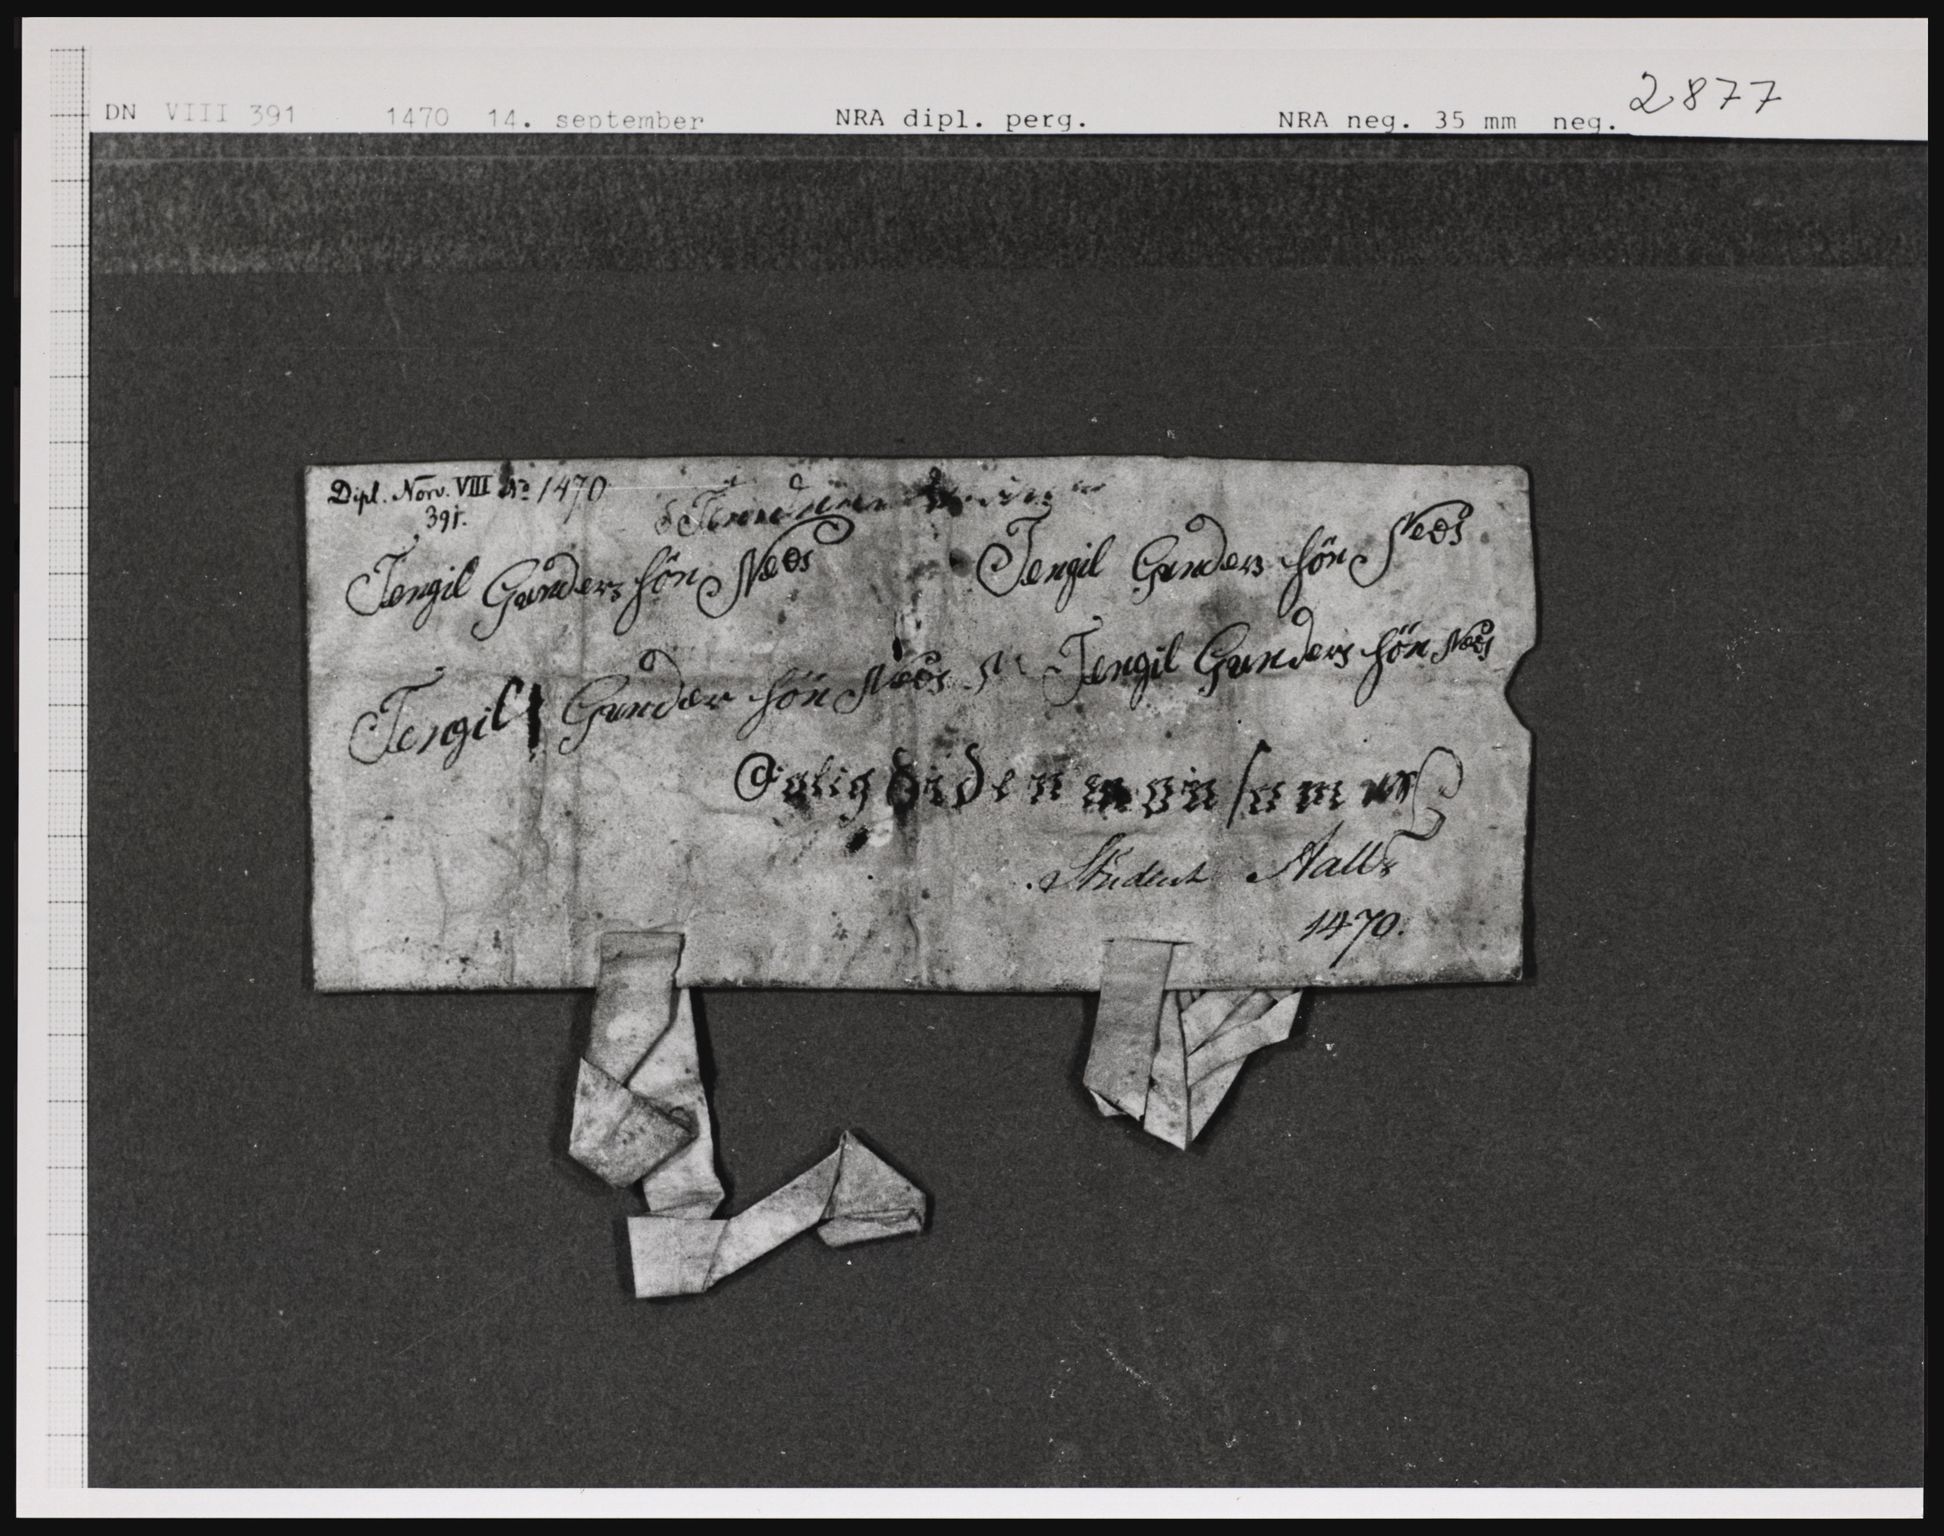 DN VIII 391 1470 14. september NRA dipl. perg. NRA neg. 35 mm neg. 2877
Dipl. Norv. VIII No 1470
391.
Tengil Gunders sön Neds Tengil Gunders sön Neds
Tengil Gunder sön Neds Tengil Gunders sön Neds
Student Aalls
1470.